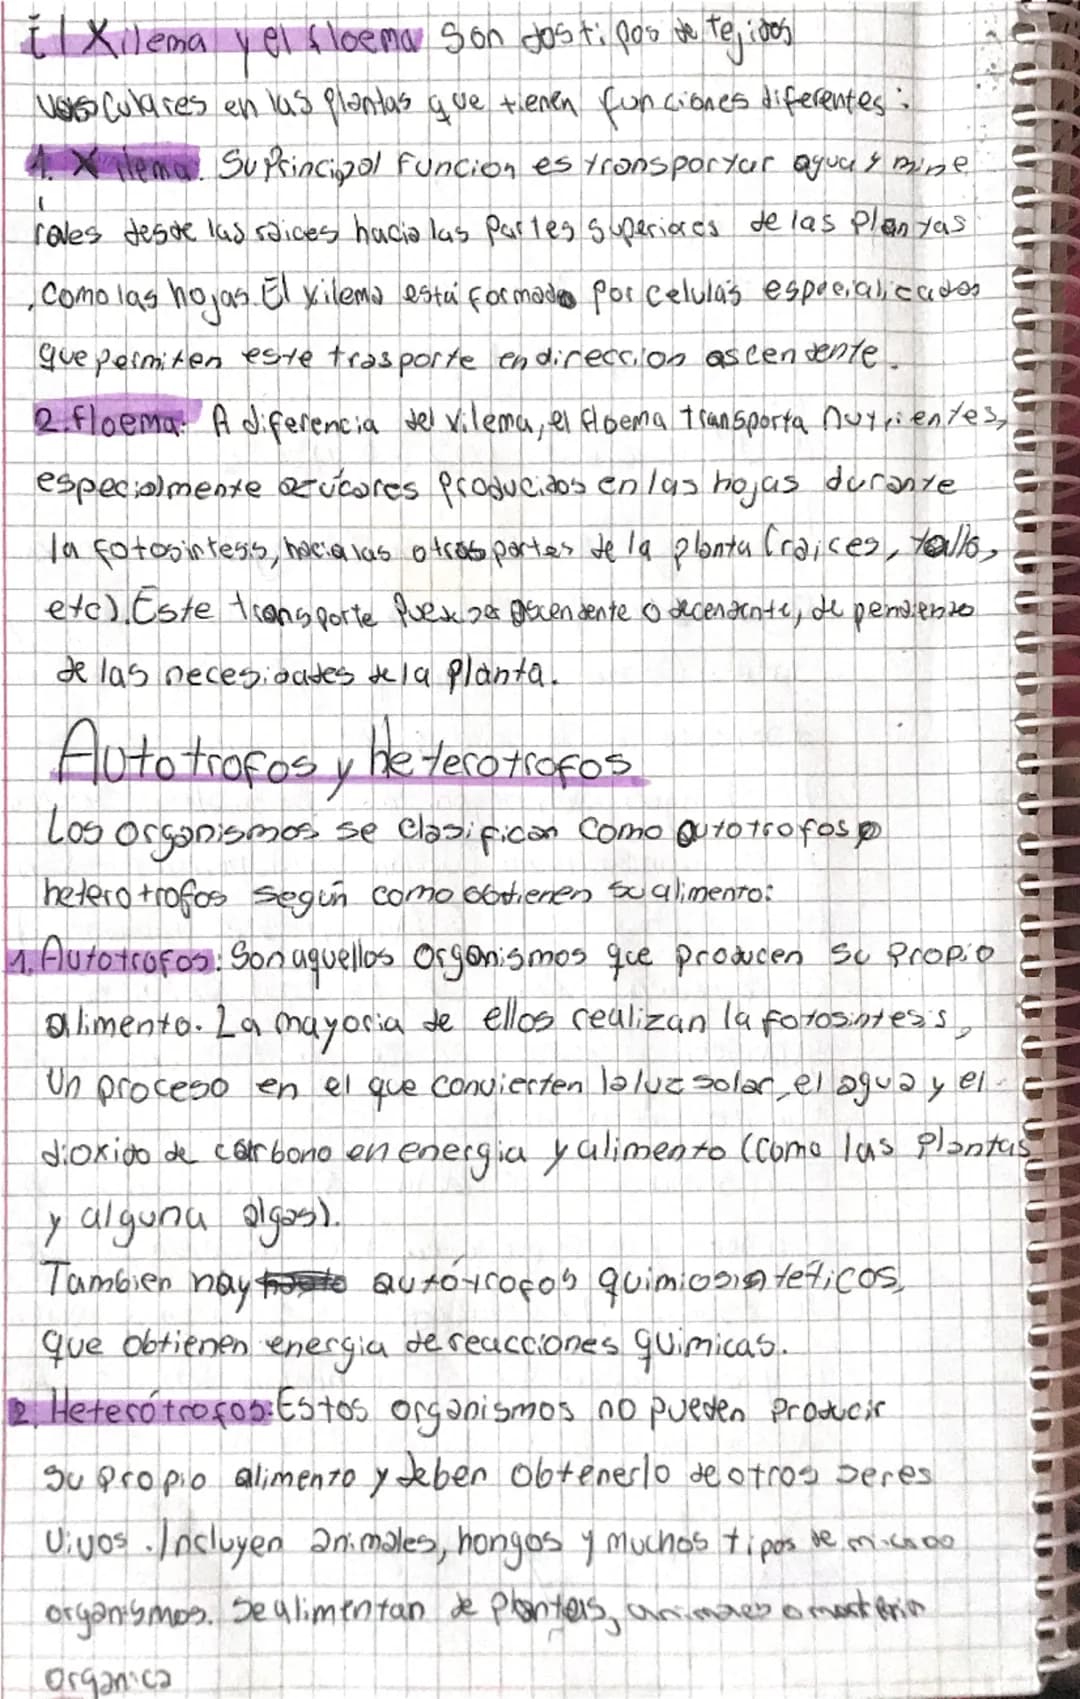 El Xilema y el floema Son dos tipos de Tejidos
vasculares en las plantas que tienen funciones diferentes:
1. Xilema: Su Principal Funcion es transportar agua y mine
rales desde las raices hacia las Partes Superiores de las Plantas
, Como las hojas. El xilema está formado por celulas especializadas
que permiten este trasporte en direccion ascendente.
2. floema: A diferencia del xilema, el floema transporta nutrientes,
especialmente azúcares producidos en las hojas durante
la fotosintesis, hacia las otras partes de la planta (raices, tallo,
etc). Este transporte puede ser ascendente o decendente, de pendiendo
de las necesidades de la Planta.
Autotrofos y heterotrofos
Los organismos se Clasifican Como autotrofos o
heterotrofos según como obtienen su alimento:
1. Autotrofos: Son aquellos Organismos que producen Su Propio
alimento. La mayoria de ellos realizan la fotosintesis,
Un proceso en el que convierten la luz solar, el agua y el
dioxido de carbono en energia y alimento (Como las Plantas
y alguna algas).
Tambien hay autótrofos quimiosinteticos,
que obtienen energia de reacciones quimicas.
2. Heterótrofos: Estos organismos no pueden Producir
Su propio alimento y deben Obtenerlo de otros Seres
Vivos. Incluyen animales, hongos y muchos tipos de micro
organismos. Se alimentan de plantas, animales o materia
Organica